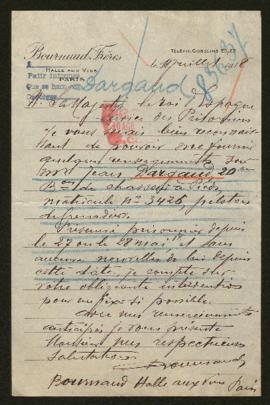 Bournaud Frères
HALLE AUX VINS
PARIS
TÉLÉPH. GOBELINS
Juillet 1918
Dargaud
Sa Majesté le Roi d'Espagne
Service des Prisonniers
Je vous serais bien reconnais-
sant de pouvoir me fournir
quelques renseignements sur
Mr Jean Dargaud 20e
Bon de chasseurs à pied
matricule No 3426 peloton
de grenadiers.
Présumé prisonnier depuis
le 27 ou le 28 mai, et sans
aucune nouvelles de lui depuis
cette date, je compte sur
votre obligeante intervention
pour si possible.
Avec mes remerciements
anticipés je vous présente
Monsieur mes respectueuses
salutations
Bournaud
Bournaud Halle aux vins Paris